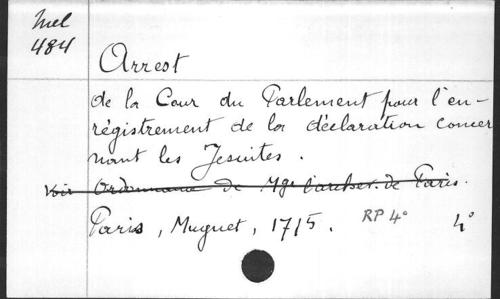 Mel
484
Arrest
de la Cour du Parlement pour l'en-
régistrement de la déclaration concer
nant les Jesuites.
voir Ordonnance de Mgr l'archev. de Paris.
Paris, Muguet, 1715. RP 4° 4°